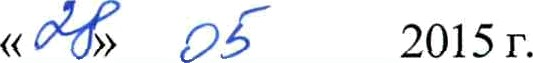 «28» 05 2015 г.